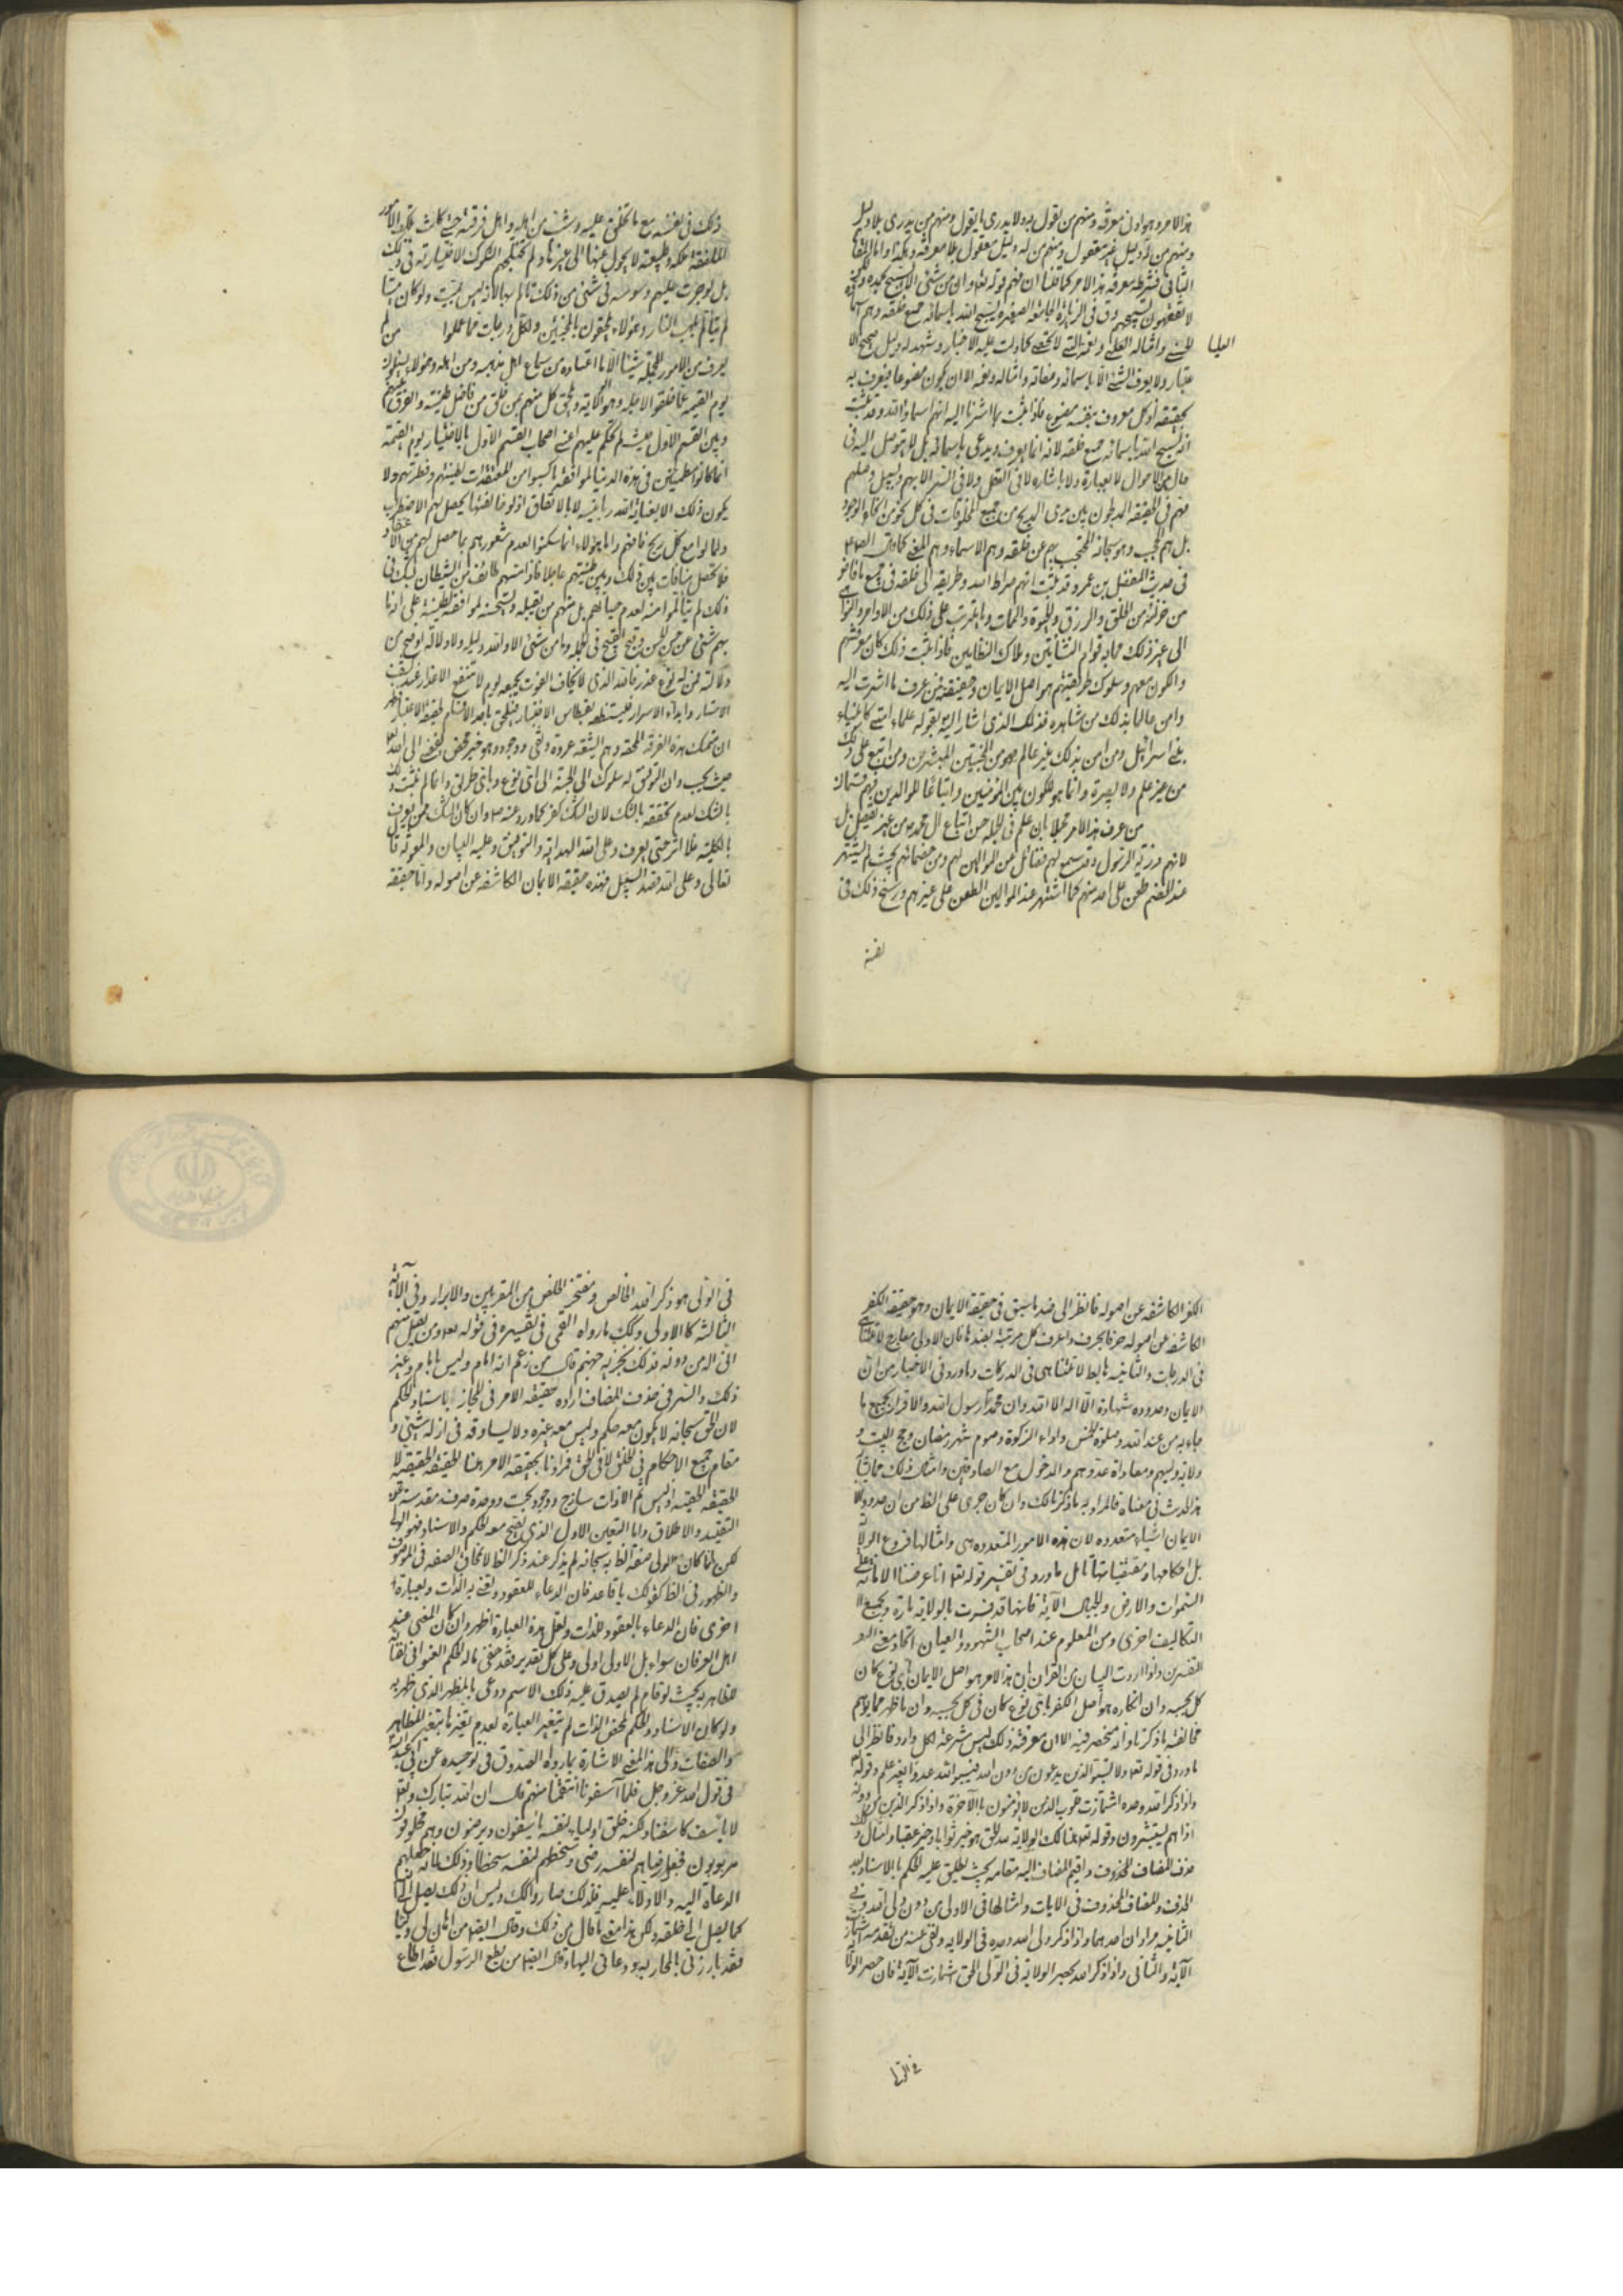 هذا الامر وهو ادنى معرفة ومنهم من يقول به ولا يدرى ما يقول ومنهم من يدرى بلا دليل
ومنهم من له دليل غير معقول ومنهم من له دليل معقول بلا معرفة وهكذا واما المقام
الثانى فشرطه معرفة هذا الامر كما قلنا ان فهم قوله تعا وان من شئ الا يسبح بحمده ولكن
لا تفقهون تسبيحهم وفى الزيارة الجامعة الصغيرة يسبح الله باسمائه جميع خلقه وهم اسماؤه
الحسنى وامثاله العليا ونعمه التى لا تحصى كما دلت عليه الاخبار وشهد له دليل صحيح الا
العليا
عتبار ولا يعرف الشئ الا باسمائه وصفاته وامثاله ونعمه الا ان يكون مصنوعا فيعرف به
بحقيقته اذ كل معروف بنفسه مصنوع فاذا ثبت بما اشرنا اليه انهم اسماء الله وقد ثبت
انه يسبح الله باسمائه جميع خلقه لانه انما يعرف ويدعى باسمائه بل لا يتوصل اليه فى
حال من الاحوال لا بعبارة ولا باشارة لا فى العقل ولا فى السر الا بهم وسبيل وصلهم
فهم فى الحقيقة المدلجون بين يدى المدلج من جميع المخلوقات فى كل نحو من انحاء الوجود
بل هم الحجب وهو سبحانه المحتجب بهم عن خلقه وهم الاسماء وهم المعنى كما قال الصادق
فى حديث المفضل بن عمرو وقد ثبت انهم صراط الله وطريقه الى خلقه فى جميع ما افاض
من خزائنه من الخلق والرزق والحيوة والممات وما يترتب على ذلك من الاوامر والنواهى
الى غير ذلك مما به قوام النشأتين وملاك النظامين فاذا ثبت ذلك كان معرفتهم
والكون معهم وسلوك طريقتهم هو اصل الايمان وحقيقته فمن عرف ما اشرت اليه
وامن عالما بذلك من شاهده فذلك الذى اشار اليه بقوله علماء امتى كانبياء
بنى اسرائيل ومن امن بذلك غير عالم فهو من المخبتين المبشرين ومن اتبع على ذلك
من غير علم ولا بصيرة وانما هو للكون بين المؤمنين واتباعا للوالدين فهم قسمان
من عرف هذا الامر مجملا بان علم فى الجملة حسن اتباع آل محمد من غير تفصيل بل
لانهم ذرية الرسول وقد سمع لهم فضائل من الموالين لهم ومن خصمائهم بحيث لم يشتهر
عند الخصم طعن على احد منهم كما اشتهر عند الموالين الطعن على غيرهم ورسخ ذلك فى
نفسه
ذلك فى نفسه مع ما تخلق عليه ونشئ من اهله واهل فرقته حتى كانت تلك الامور
الملفقة ملكة وطبيعة لا يحول عنها الى غيرها ولم تختلجهم الشكوك الاختيارية فى ذلك
بل لو جرت عليهم وسوسة فى شئ من ذلك تالم بها لانه ليس بميت ولو كان ميتا
لم يتألم بلهب النار وهؤلاء يلحقون بالمخبتين ولكل درجات مما عملوا من لم
يعرف من الامور المجملة شيئا الا ما اعتاده من سماع اهل مذهبه ومن اهله وهؤلاء يسئلون
يوم القيمة عما خلقوا لاجله وهو الكاية ويلحق كل منهم بمن خلق من فاضل طينته والفرق بينهم
وبين القسم الاول حيث لم يحكم عليهم اعنى اصحاب القسم الاول بالاختيار يوم القيمة
انما كانوا مطمئنين فى هذه الدنيا لموافقة ما اكتسبوا من المعتقدات لطينتهم وفطرتهم ولا
يكون ذلك الا بعناية الله ربانية لا بالاتفاق اذ لو خالفتها يحصل لهم الاضطراب
ولمالوا مع كل ريح فافهم واما هؤلاء انما سكنوا لعدم شعورهم بما حصل لهم من الاعتقاد
فلا تحصل منافات بين ذلك وبين طينتهم عاجلا فاذا مسهم طائف من الشيطان فشك فى
ذلك لم يتألموا منه لعدم حياتهم بل منهم من يقبله ويستحسنه لموافقة الطينة على انه ما
بهم شئ عن حسن الحسن وقبح القبيح فى الجملة وما من شئ الا ولله دليله ولا دلالة اوضح من
دلالته فمن له نوع عذر فالله الذى لا يخاف الفوت يجمعه ليوم لا تنفع الاعذار عند كشف
الاستار وابداء الاسرار
ان تمسك هذه الفرقة المحقة وهم الشيعة عروة وثقى ووجوده وهو خير محض يفضى الى الله
حيث يحب وان التوفيق له سلوك الى الجنة الى اى نوع وباى طريق وانما لم يثبت ذلك
بالشك لعدم تحققه بالشك لان الشك كفر كما ورد عنه ص وان كان الشك ممن يعرف
بالكلية فلا اثر حتى يعرف وعلى الله الهداية والتوفيق وعليه البيان والمعونة قال
تعالى وعلى الله قصد السبيل فهذه حقيقة الايمان الكاشفة عن اصوله واما حقيقة
الكفر الكاشفة عن اصوله فانظر الى ضد ما سبق فى حقيقة الايمان وهو حقيقة الكفر
الكاشفة عن اصوله حرفا بحرف واعرف كل مرتبة بضدها فان الاولى معارج لا تتناهى
فى الدرجات والثانية مهابط لا تتناهى فى الدركات وما ورد فى الاخبار من ان
الايمان وحدوده شهادة ان لا اله الا الله وان محمدا رسول الله والاقرار بجميع ما
جاء به من عند الله وصلوة الخمس واداء الزكوة وصوم شهر رمضان وحج البيت و
ولاية وليهم ومعاداة عدوهم والدخول مع الصادقين وامثال ذلك مما يشابه
هذا الحديث فى معناه فالمراد به ما ذكرنا لك وان كان جرى على الظاهر من ان حدود
الايمان اشياء متعددة لان هذه الامور المتعددة هى وامثالها فروع الولاية
بل احكامها ومقتضياتها تأمل ما ورد فى تفسير قوله تعا انا عرضنا الامانة على
السموات والارض والجبال الآية فانها قد فسرت بالولاية تارة وبجميع
التكاليف اخرى ومن المعلوم عند اصحاب الشهود والعيان اتحاد معنى
التفسيرين ولو اردت البيان من القران ان هذا الامر هو اصل الايمان باى نوع كان
كل بحسبه وان انكاره هو اصل الكفر باى نوع كان فى كل بحسبه وان ما ظهر مما يوهم
مخالفة ما ذكرنا وانه منحصر فيه الا ان معرفة ذلك ليس شرعة لكل وارد فانظر الى
ما ورد فى قوله تعا ولا تسبوا الذين يدعون من دون الله فيسبوا الله عدوا بغير علم وقوله
واذا ذكر الله وحده اشمأزت قلوب الذين لا يؤمنون بالآخرة واذا ذكر الذين من دونه
اذا هم يستبشرون وقوله تعا هنالك الولاية لله الحق هو خير ثوابا وخير عقبا وامثال ذلك
حذف المضاف المحذوف واقيم المضاف اليه مقامه بحيث يطلق عليه الحكم بالاسناد بعد
الحذف والمضاف المحذوف فى الآيات وامثالها فى الاولى من دون ولى الله وفى
الثانية مرادان احدهما واذا ذكر ولى الله وحده فى الولاية ونفى عنه من تقدمه اشمأز
الآية والثانى واذا ذكر الله بحصر الولاية فى الولى الحق اشمأزت الآية فان حصر الولاية
فى الولى
فى الولى هو ذكر الله الخالص ومفتخر الخلص من المقربين والابرار وفى الآية
الثالثة كالاولى وكك ما رواه القمى فى تفسيره فى قوله تعا ومن يقل منهم
انى اله من دونه فذلك نجزيه جهنم قال من زعم انه امام وليس بامام وغير
ذلك والسر فى حذف المضاف ارادة حقيقة الامر فى المجاز باسناد الحكم
لان الحق سبحانه لا يكون معه حكم وليس معه غيره ولا يساوقه فى ازله شئ و
مقام جميع الاحكام فى الخلق لا فى الحق فمرادنا بحقيقة الامر هنا الحقيقة الخلقية لا
الحقيقة الحقية اذ ليس ثم الا ذات ساذج ووجود بحت ووحدة صرف مقدسة عن
التقييد والاطلاق واما التعين الاول الذى يصح معه الحكم والاسناد فهو الولى
لكن لما كان الولى صفة الظاهر به سبحانه لم يذكر عند ذكر الظاهر لانمحاق الصفة فى الموصوف
والظهور فى الظاهر كقولك يا قاعد فان الدعاء للقعود ونعنى به الذات وبعبارة
اخرى فان الدعاء بالقعود للذات ولعل هذه العبارة اظهر وان كان المعنى عند
اهل العرفان سواء بل الاولى اولى وعلى كل تقدير فقد خفى ما له الحكم العنوانى لفنائه
للظاهر به بحيث لو قام لم يصدق عليه ذلك الاسم ودعى بالمظهر الذى ظهر به
ولو كان الاسناد والحكم لمحض الذات لم تتغير العبارة لعدم تغيرها بتغير المظاهر
والصفات والى هذا المعنى الاشارة بما رواه الصدوق فى توحيده عن ابى عبدالله
فى قول الله عز وجل فلما آسفونا انتقمنا منهم قال ان الله تبارك وتعا
لا يأسف كاسفنا ولكنه خلق اولياء لنفسه يأسفون ويرضون وهم مخلوقون
مربوبون فجعل رضاهم لنفسه رضى وسخطهم لنفسه سخطا وذلك لانه جعلهم
الدعاة اليه والادلاء عليه فلذلك صاروا كك وليس ان ذلك يصل الى الله
كما يصل الى خلقه ولكن هذا معنى ما قال من ذلك وقال ايضا من اهان لى وليا
فقد بارزنى بالمحاربة ودعانى اليها وقال ايضا من يطع الرسول فقد اطاع